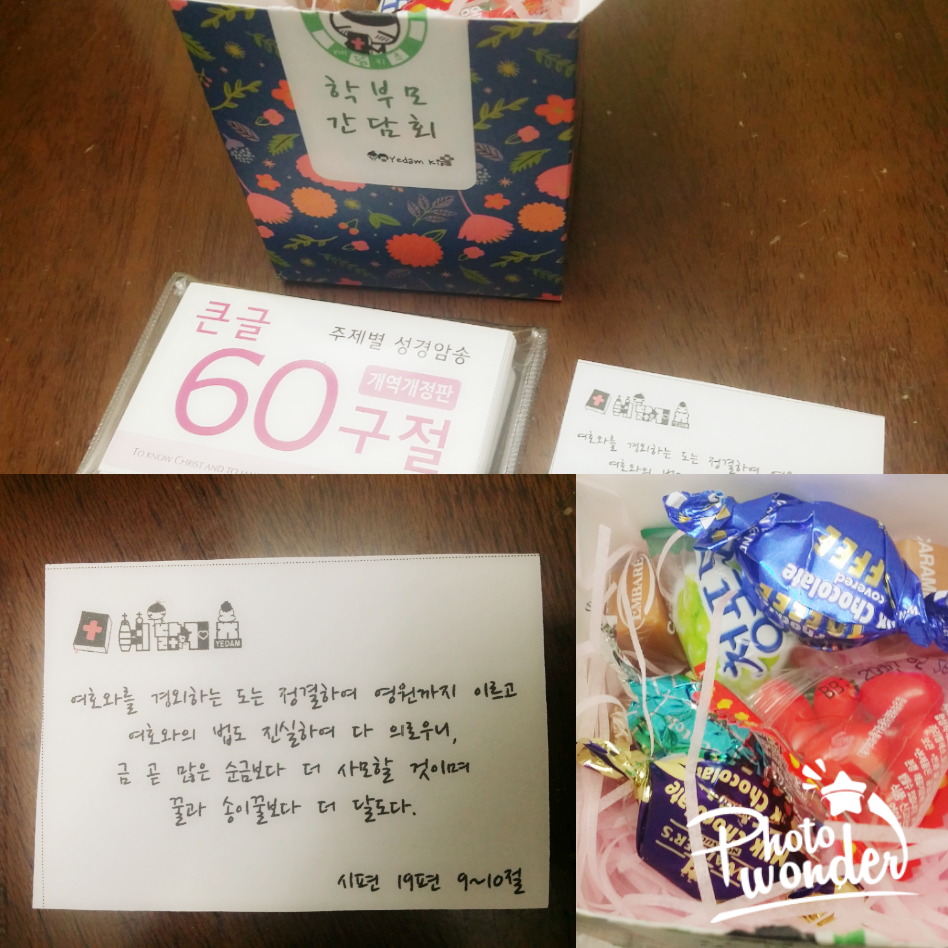 학부모
간담회
Yedam Kids
큰글
주제별 성경암송
60
개역개정판
구절
TO KNOW CHRIST AND TO
여호와를 경외하는 도는 정결하여
여호와의 법도
YEDAM
여호와를 경외하는 도는 정결하여 영원까지 이르고
여호와의 법도 진실하여 다 의로우니,
금 곧 많은 순금보다 더 사모할 것이며
꿀과 송이꿀보다 더 달도다.
시편 19편 9~10절
Chocolate
covered
TOFFEE
EMBARÉ
CARAM
청포도
Milk Chocolate
Photo
wonder